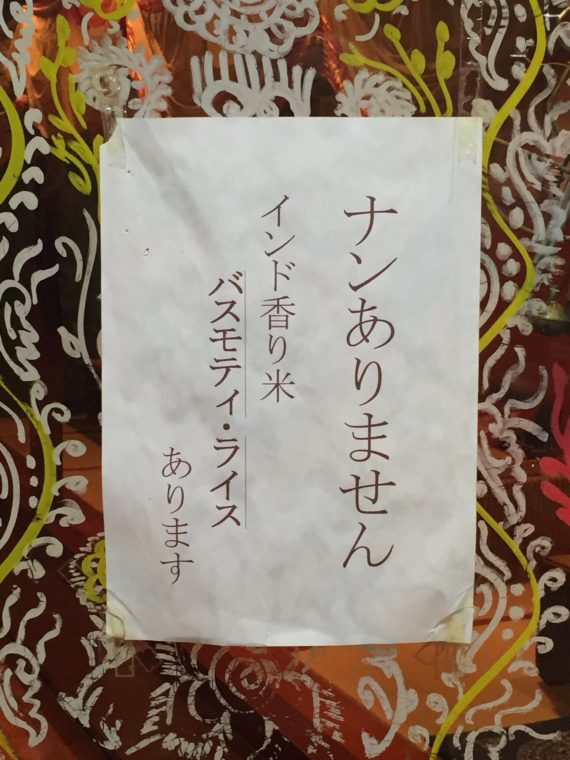 ナンありません
インド香り米
バスモティ・ライス
あります